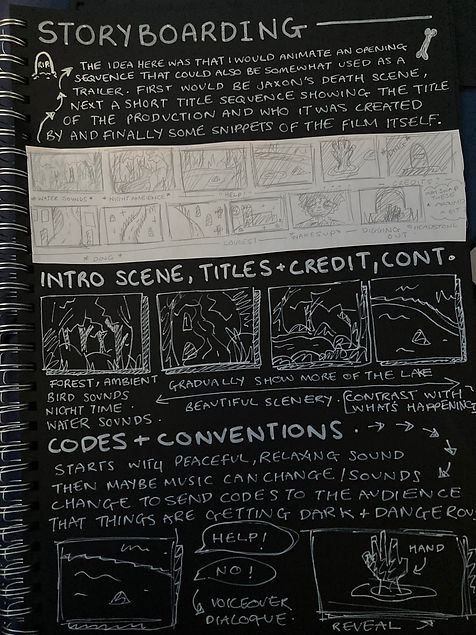 STORYBOARDING
RIP
THE IDEA HERE WAS THAT I WOULD ANIMATE AN OPENING
SEQUENCE THAT COULD ALSO BE SOMEWHAT USED AS A
TRAILER. FIRST WOULD BE JAXON'S DEATH SCENE,
NEXT A SHORT TITLE SEQUENCE SHOWING THE TITLE
OF THE PRODUCTION AND WHO IT WAS CREATED
BY AND FINALLY SOME SNIPPETS OF THE FILM ITSELF.
*WATER SOUNDS* *NIGHT AMBIENCE* HELP!
*DING* COUGHS! *WAKES UP* DIGGING OUT HEADSTONE
INTRO SCENE, TITLES + CREDIT, CONT.
FOREST, AMBIENT
BIRD SOUNDS
NIGHT TIME.
WATER SOUNDS.
GRADUALLY SHOW MORE OF THE LAKE
BEAUTIFUL SCENERY.
CONTRAST WITH
WHAT'S HAPPENING
CODES + CONVENTIONS.
STARTS WITH PEACEFUL, RELAXING SOUND
THEN MAYBE MUSIC CAN CHANGE / SOUNDS
CHANGE TO SEND CODES TO THE AUDIENCE
THAT THINGS ARE GETTING DARK + DANGEROU
HELP!
NO!
VOICEOVER
DIALOGUE.
HAND
REVEAL